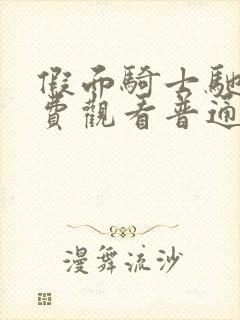 假面騎士馳
費觀看普通
漫舞流沙